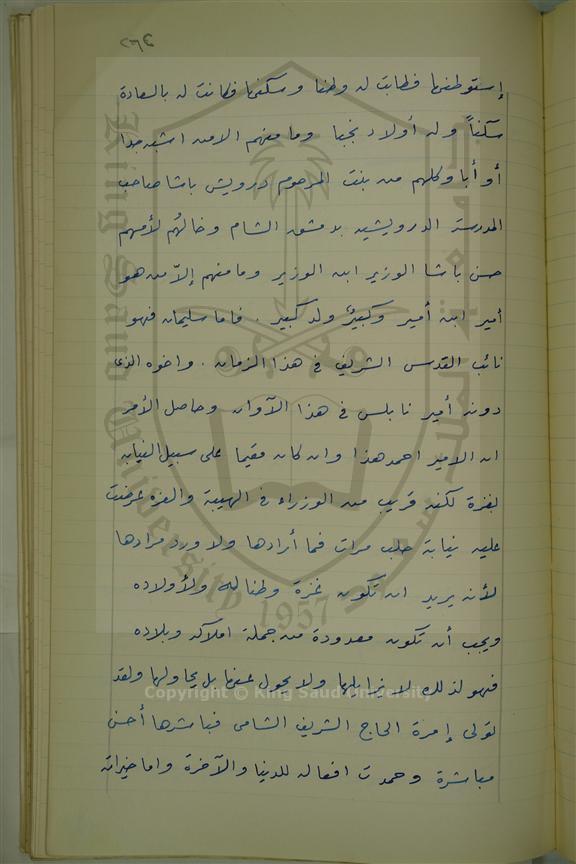 ٢٦٤
إستوطنها فطابت له وطنا وسكنها فكانت له بالسعادة
سكناً وله أولاد نجبا وما منهم الا من اشبه جدا
أو أبا وكلهم من بنت المرحوم درويش باشا صاحب
المدرسة الدرويشيه بدمشق الشام وخالهُم لأمهم
حسن باشا الوزير ابن الوزير وما منهم إلاّ من هو
أمير ابن أمير وكبيرٌ ولد كبير . فاما سليمان فهو
نائب القدس الشريف في هذا الزمان . واخوه الذى
دونه أمير نابلس في هذا الآوان وحاصل الأمر
ان الامير احمد هذا وان كان مقيما على سبيل النيابه
بغزة لكنه قريب من الوزراء في الهيبة والعزه عرضت
عليه نيابة حلب مرات فما أرادها ولا ورد مرادها
لأنه يريد ان تكون غزة وطنا له ولأولاده
ويجب أن تكون معدودة من جملة املاكه وبلاده
فهو لذلك لا يزايلها ولا يحول عنها بل يحاولها ولقد
تولى إمرة الحاج الشريف الشامى فباشرها أحسن
مباشرة وحمدت افعاله للدنيا والآخرة واما خيراته
King Saud University
1957
Copyright © King Saud University